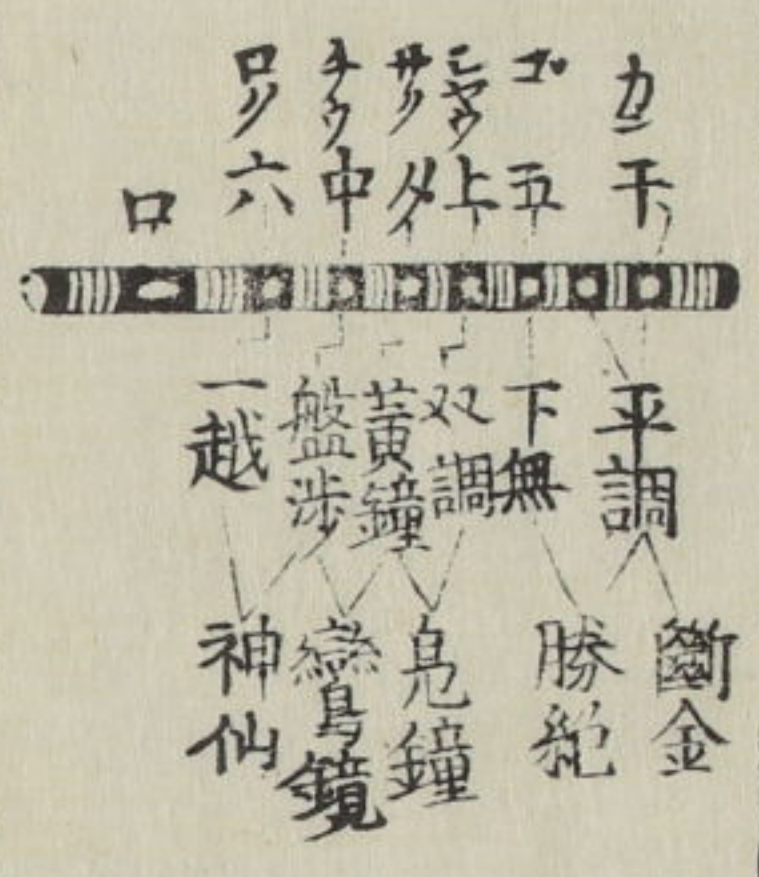 カン
干
ゴ
五
シヤウ
上
サク
夕
チウ
中
ロク
六
口
平調
下無
双調
黃鐘
盤涉
一越
斷金
勝絶
鳧鐘
鸞鏡
神仙